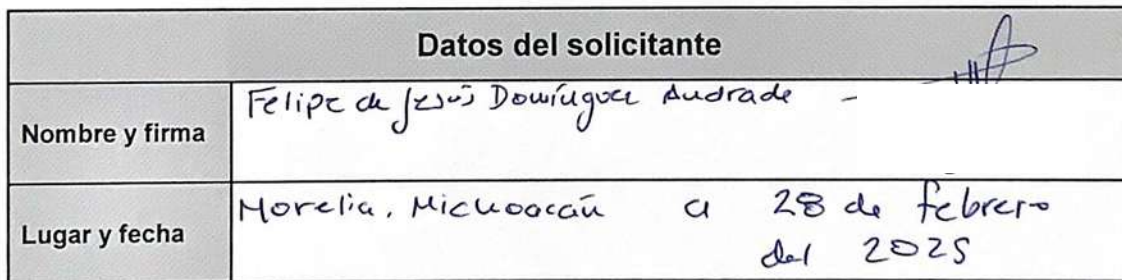 Datos del solicitante
Nombre y firma
Felipe de Jesús Domínguez Andrade -
Lugar y fecha
Morelia, Michoacán a 28 de febrero
del 2025